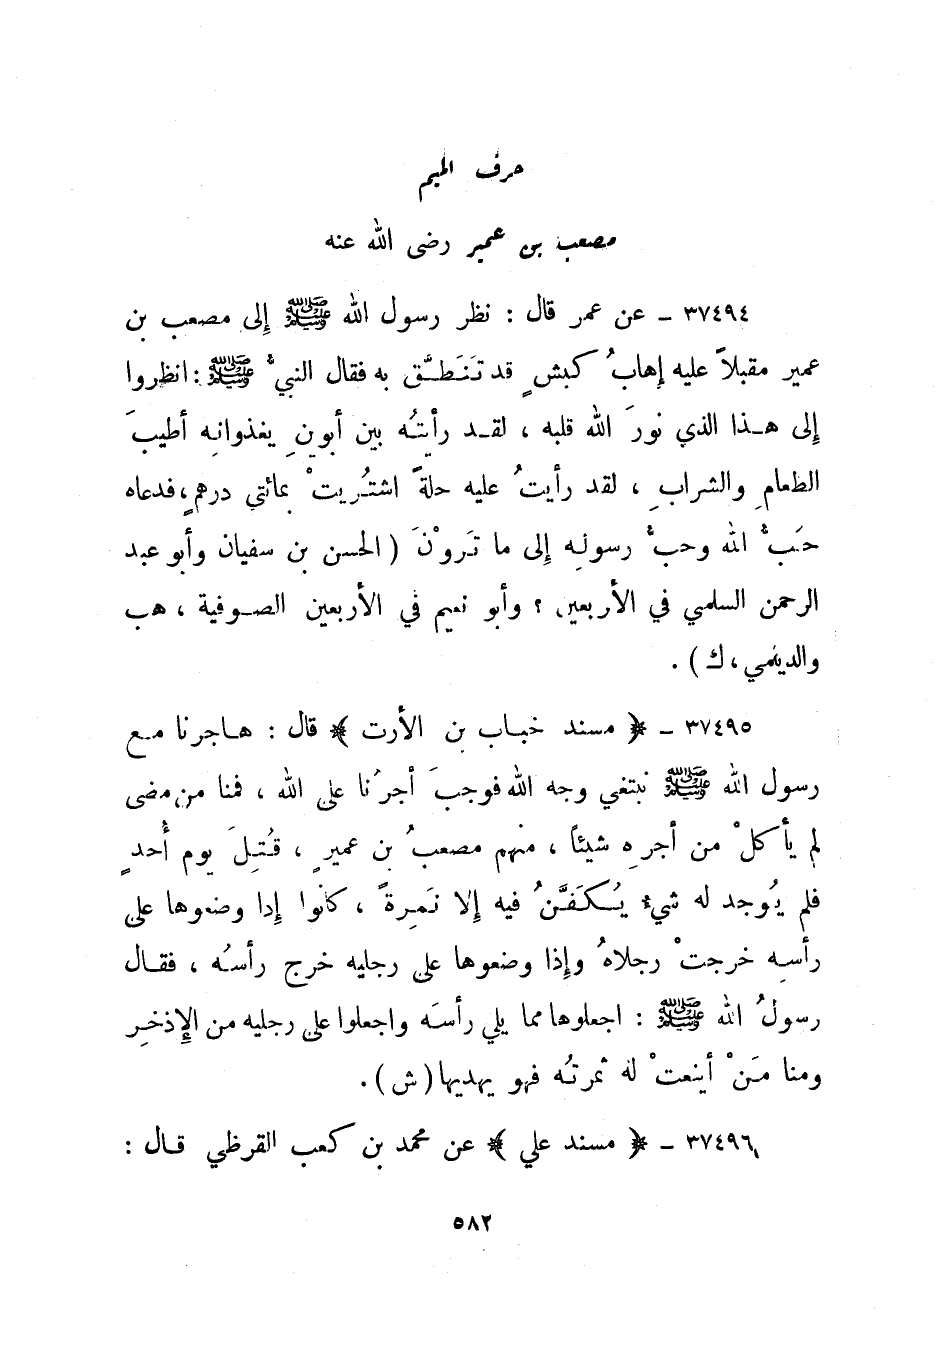 حرف الميم
مصعب بن عمير رضى الله عنه
٣٧٤٩٤ ـ عن عمر قال : نظر رسول الله ﷺ إلى مصعب بن
عمير مقبلاً عليه إهابُ كبشٍ قد تَنَطَّق به فقال النبيُّ ﷺ : انظروا
إلى هـذا الذي نورَ الله قلبه ، لقـد رأيتُه بين أبوينِ يغذوانِه أطيبَ
الطعامِ والشرابِ ، لقد رأيتُ عليه حلةً اشتُريتْ بمائتي درهمٍ،فدعاه
حَبُّ الله وحبُّ رسولِه إلى ما تَروْنَ ( الحسن بن سفيان وأبو عبد
الرحمن السلمي في الأربعين ؟ وأبو نعيم في الأربعين الصـوفية ، هب
والديلمي ، ك ) .
٣٧٤٩٥ ـ ﴿ مسند خبـاب بن الأرت ﴾ قال : هـاجرنا مـع
رسول الله ﷺ نبتغي وجه الله فوجبَ أجرُنا على الله ، فمنا من مضى
لم يأكلْ من أجرِه شيئاً ، منهم مصعبُ بن عميرٍ ، قُتِلَ يوم أُحدٍ
فلم يُوجد له شيءٌ يُـكَفَّنُ فيه إلا نَمِرةً ، كانُوا إذا وضعوها على
رأسِه خرجتْ رجلاهُ وإذا وضعوها على رجليه خرج رأسُه ، فقـال
رسولُ الله ﷺ : اجعلوها مما يلي رأسَه واجعلوا على رجليه من الإِذخِر
ومنا مَنْ أينعتْ له ثمرتُه فهو يهديها ( ش ) .
٣٧٤٩٦ ـ ﴿ مسند علي ﴾ عن محمد بن كعب القرظي قـال :
٥٨٢